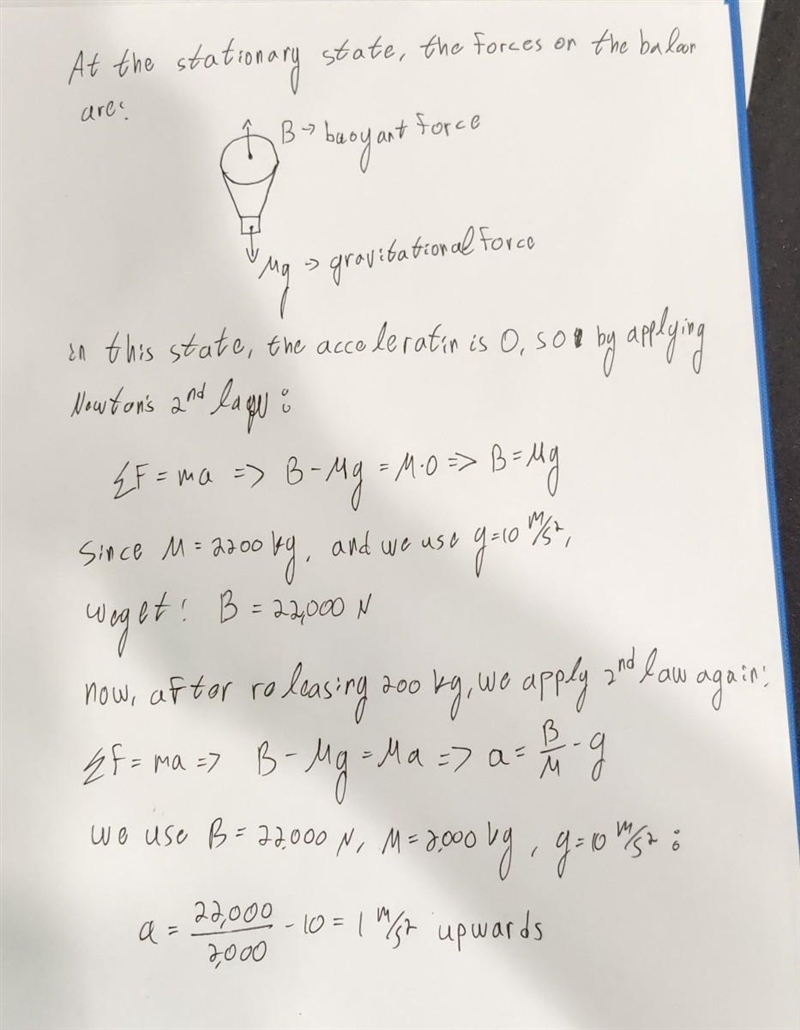 At the stationary state, the forces on the baloon
are:
B → buoyant force
Mg → gravitational force
in this state, the acceleratin is 0, so by applying
Newton's 2nd law:
ΣF = ma => B - Mg = M·0 => B = Mg
Since M = 2200 kg, and we use g=10 m/s²,
we get: B = 22,000 N
now, after releasing 200 kg, we apply 2nd law again:
ΣF = ma => B - Mg = Ma => a = B/M - g
we use B = 22,000 N, M = 2,000 kg, g=10 m/s²:
a = 22,000/2,000 - 10 = 1 m/s² upwards